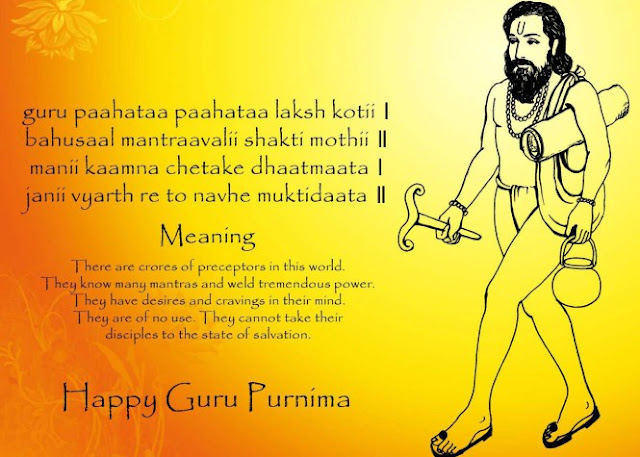 guru paahataa paahataa laksh kotii |
bahusaal mantraavalii shakti mothii ||
manii kaamna chetake dhaatmaata |
janii vyarth re to navhe muktidaata ||
Meaning
There are crores of preceptors in this world.
They know many mantras and weld tremendous power.
They have desires and cravings in their mind.
They are of no use. They cannot take their
disciples to the state of salvation.
Happy Guru Purnima